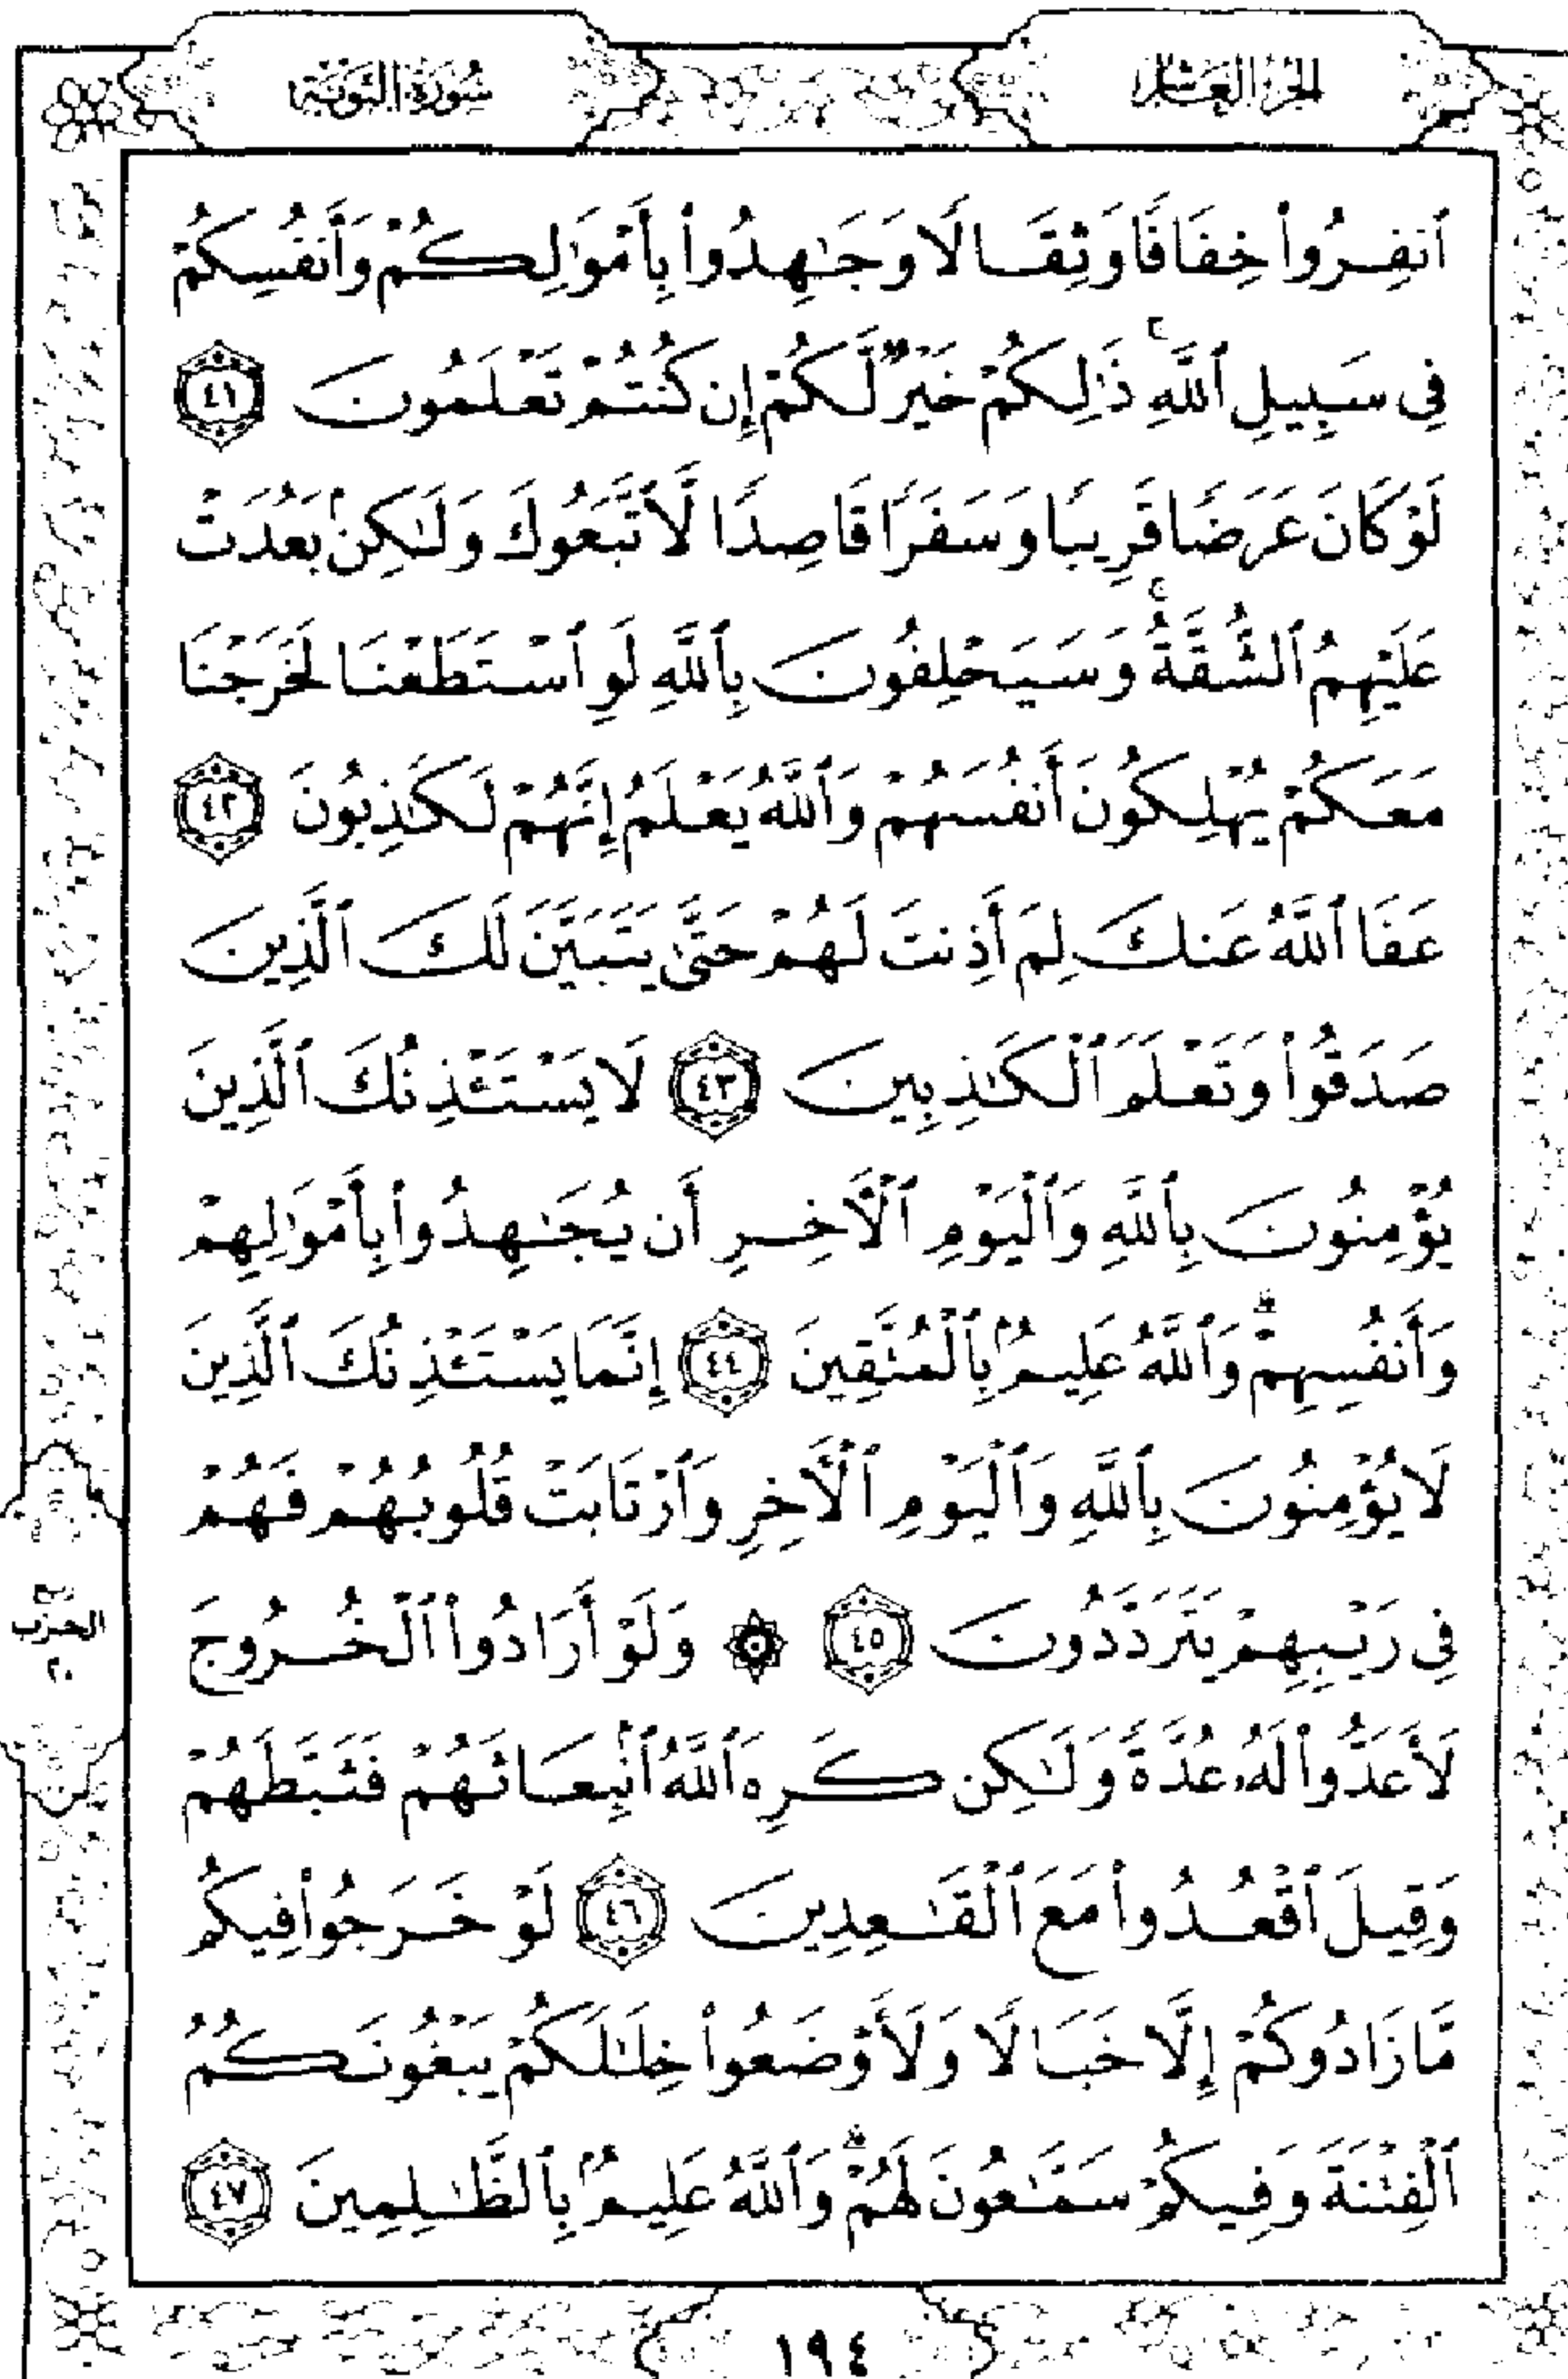 الجزء العاشر
سورة التوبة
ٱنفِرُوا۟ خِفَافًا وَثِقَالًا وَجَـٰهِدُوا۟ بِأَمْوَٰلِكُمْ وَأَنفُسِكُمْ
فِى سَبِيلِ ٱللَّهِ ۚ ذَٰلِكُمْ خَيْرٌ لَّكُمْ إِن كُنتُمْ تَعْلَمُونَ ٤١
لَوْ كَانَ عَرَضًا قَرِيبًا وَسَفَرًا قَاصِدًا لَّٱتَّبَعُوكَ وَلَـٰكِنۢ بَعُدَتْ
عَلَيْهِمُ ٱلشُّقَّةُ ۚ وَسَيَحْلِفُونَ بِٱللَّهِ لَوِ ٱسْتَطَعْنَا لَخَرَجْنَا
مَعَكُمْ يُهْلِكُونَ أَنفُسَهُمْ وَٱللَّهُ يَعْلَمُ إِنَّهُمْ لَكَـٰذِبُونَ ٤٢
عَفَا ٱللَّهُ عَنكَ لِمَ أَذِنتَ لَهُمْ حَتَّىٰ يَتَبَيَّنَ لَكَ ٱلَّذِينَ
صَدَقُوا۟ وَتَعْلَمَ ٱلْكَـٰذِبِينَ ٤٣ لَا يَسْتَـْٔذِنُكَ ٱلَّذِينَ
يُؤْمِنُونَ بِٱللَّهِ وَٱلْيَوْمِ ٱلْـَٔاخِرِ أَن يُجَـٰهِدُوا۟ بِأَمْوَٰلِهِمْ
وَأَنفُسِهِمْ ۗ وَٱللَّهُ عَلِيمٌۢ بِٱلْمُتَّقِينَ ٤٤ إِنَّمَا يَسْتَـْٔذِنُكَ ٱلَّذِينَ
لَا يُؤْمِنُونَ بِٱللَّهِ وَٱلْيَوْمِ ٱلْـَٔاخِرِ وَٱرْتَابَتْ قُلُوبُهُمْ فَهُمْ
فِى رَيْبِهِمْ يَتَرَدَّدُونَ ٤٥ ۞ وَلَوْ أَرَادُوا۟ ٱلْخُرُوجَ
لَأَعَدُّوا۟ لَهُۥ عُدَّةً وَلَـٰكِن كَرِهَ ٱللَّهُ ٱنۢبِعَاثَهُمْ فَثَبَّطَهُمْ
وَقِيلَ ٱقْعُدُوا۟ مَعَ ٱلْقَـٰعِدِينَ ٤٦ لَوْ خَرَجُوا۟ فِيكُم
مَّا زَادُوكُمْ إِلَّا خَبَالًا وَلَأَوْضَعُوا۟ خِلَـٰلَكُمْ يَبْغُونَكُمُ
ٱلْفِتْنَةَ وَفِيكُمْ سَمَّـٰعُونَ لَهُمْ ۗ وَٱللَّهُ عَلِيمٌۢ بِٱلظَّـٰلِمِينَ ٤٧
الحزب
٢٠
١٩٤